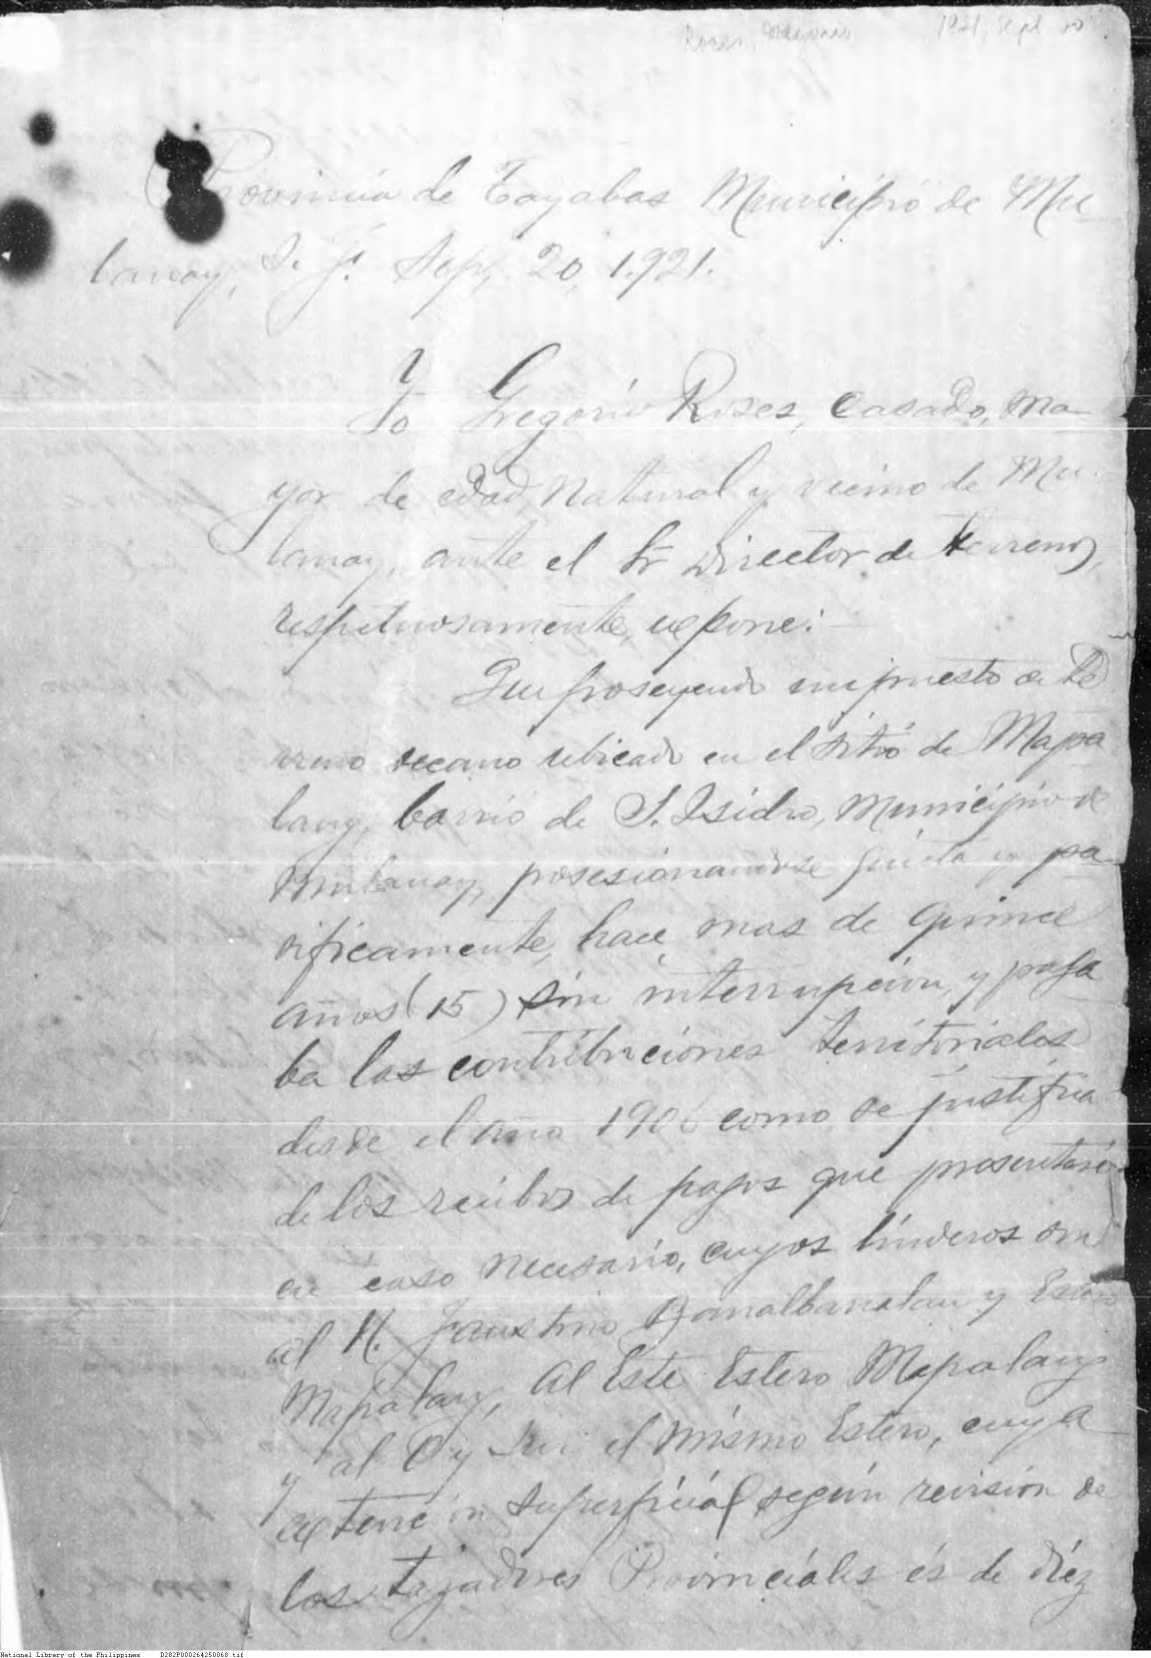 Roses, Gregorio 1921, Sept 20
Provincia de Tayabas Municipio de Mu
lanay, I. F. Sep, 20, 1.921.
Yo Gregorio Roses, Casado, ma-
yor de edad, natural y vecino de Mu-
lanay, ante el Sr Director de terrenos,
respetuosamente, expone:
Que poseyendo un puesto de te
rreno secano ubicado en el sitio de Mapa
lang, barrio de S. Isidro, Municipio de
Mulanay, posesionandose quieta y pa
cificamente, hace mas de quince
años (15) sin interrupcion, y paga
ba las contribuciones territoriales
desde el año 1906 como se justifica
de los recibos de pagos que presentaré
en caso necesario, cuyos linderos son
al N. Faustino y Estero
Mapalang, Al Este Estero Mapalang
y al O y Sur el mismo Estero, cuya
extencion superficial según revisión de
los tazadores Provinciales és de diéz
National Library of the Philippines D282P000264250068.tif